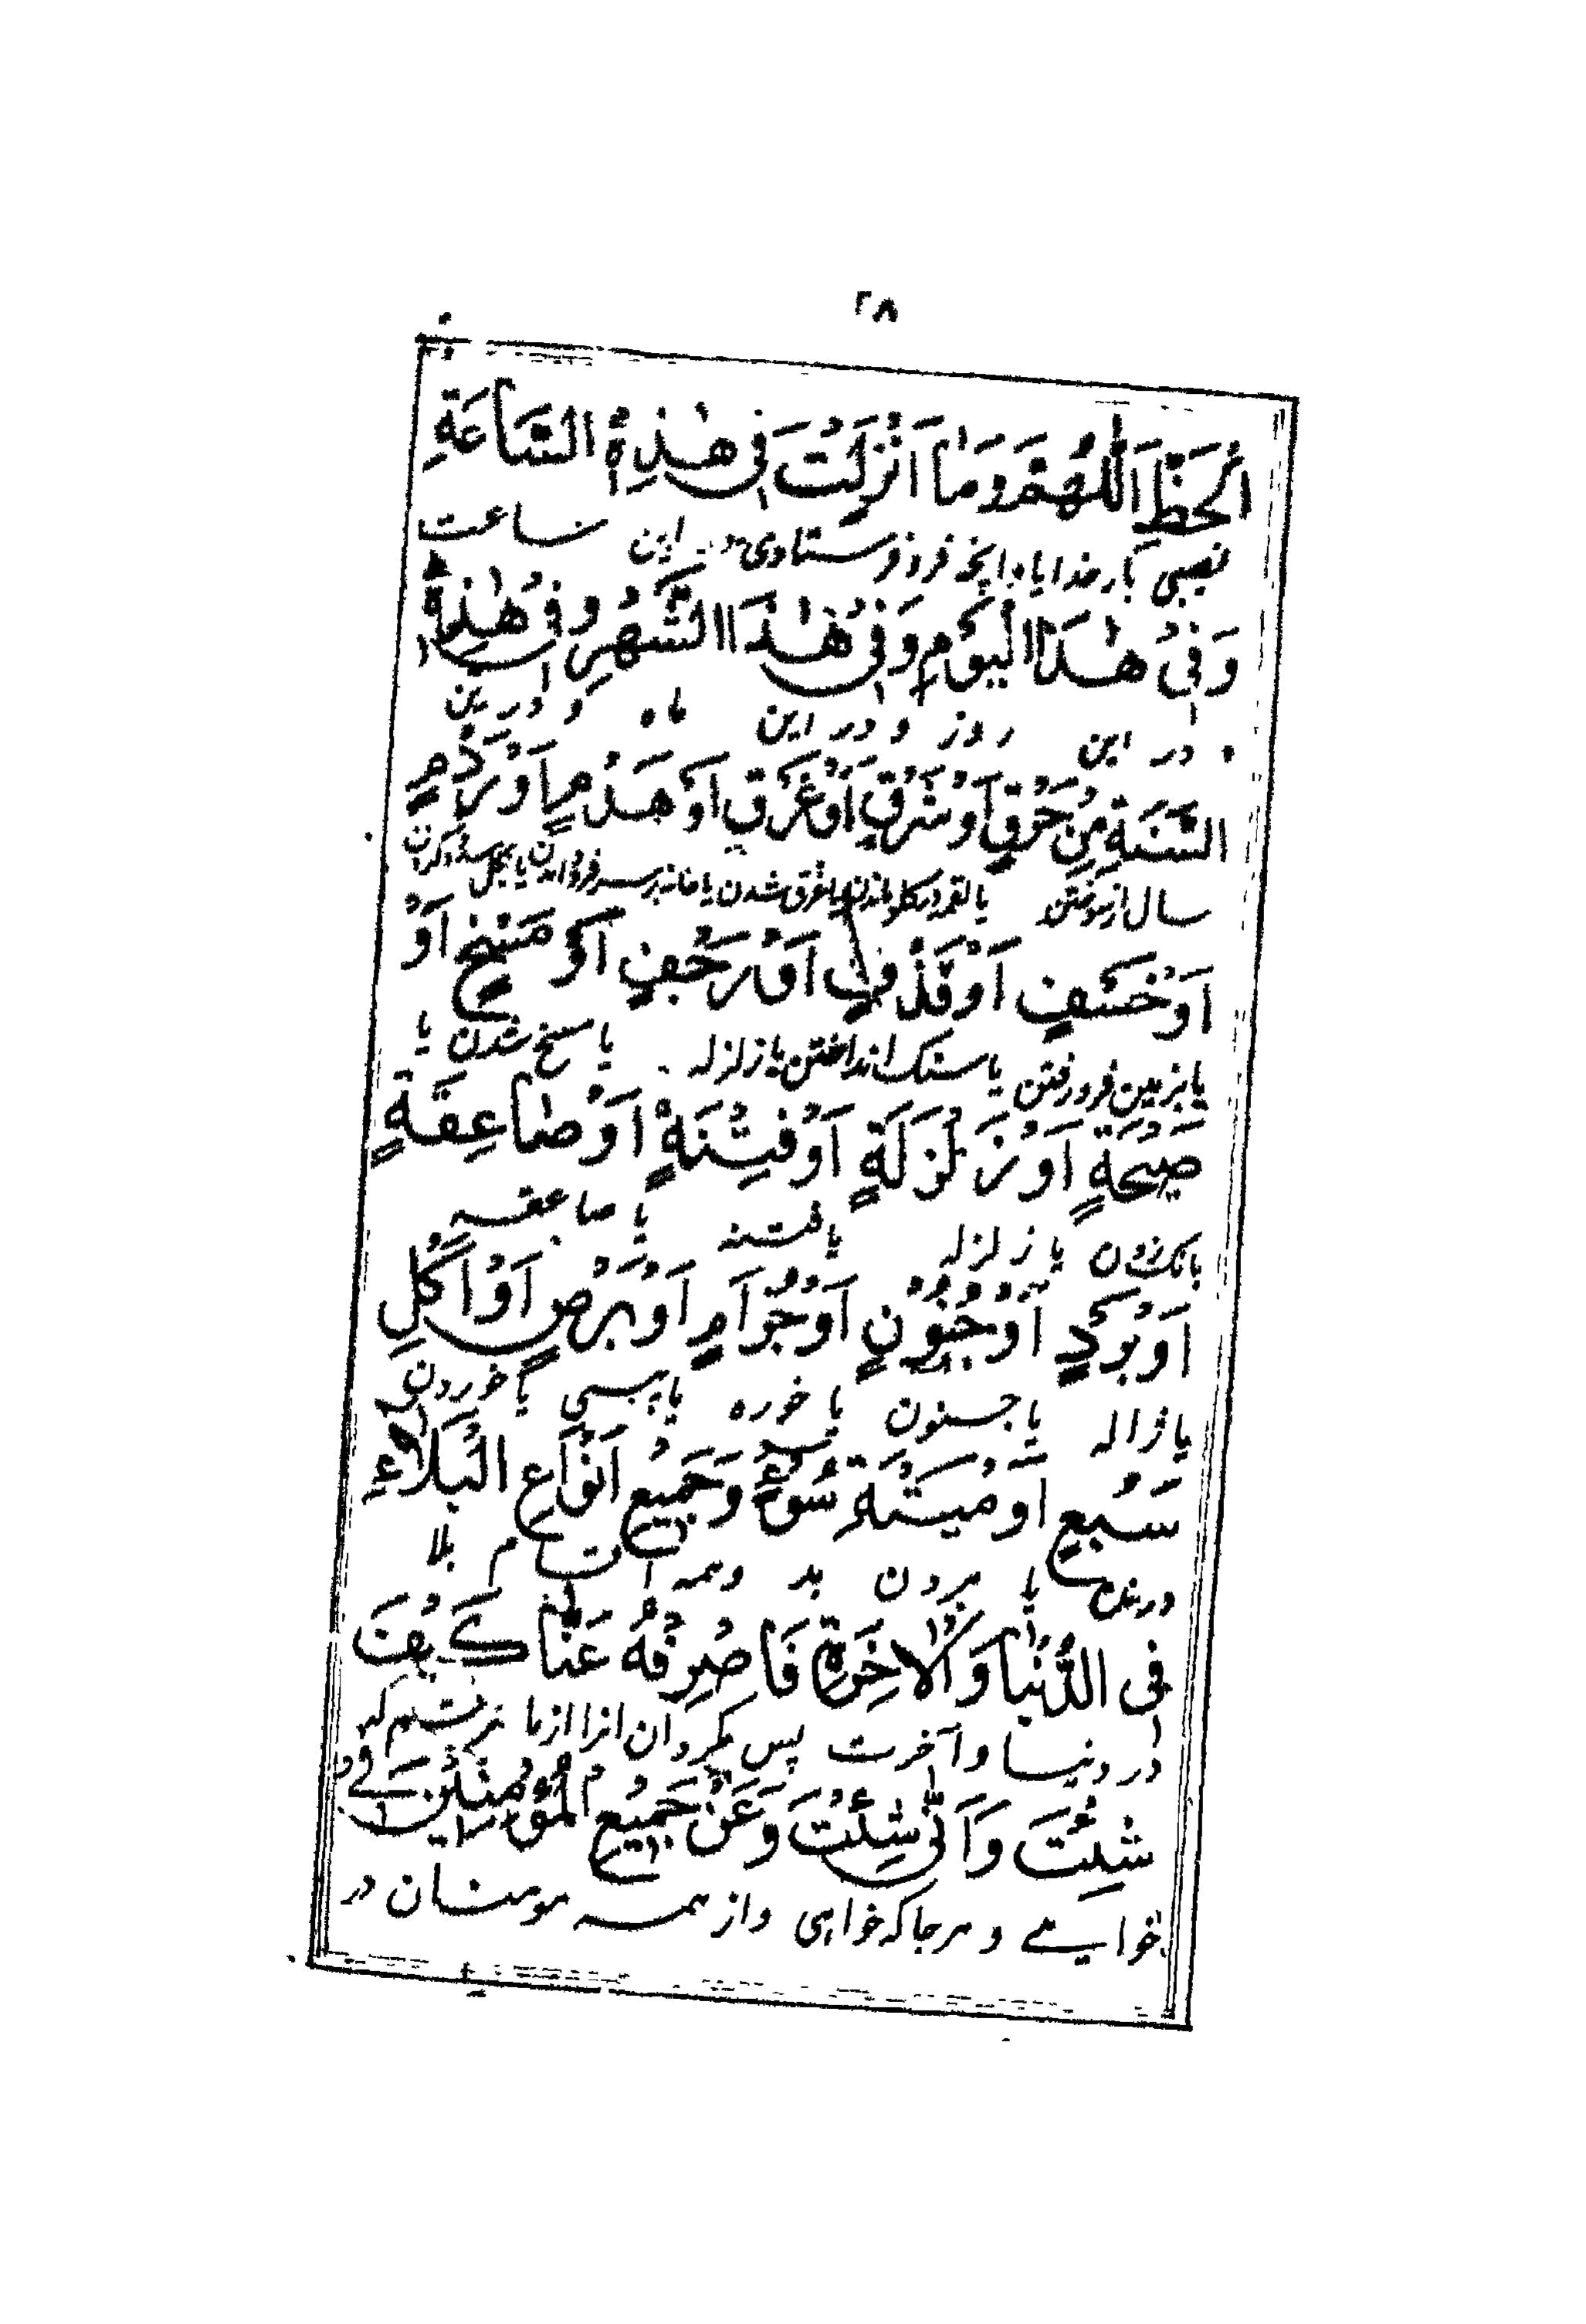 ۲۸
الْحَظِّ اَللّٰهُمَّ وَمَا اَنْزَلْتَ فِى هٰذِهِ السَّاعَةِ
نصیبی بار خدایا و انچه فرو فرستادی در این ساعت
وَفِىْ هٰذَا الْيَوْمِ وَفِىْ هٰذَا الشَّهْرِ وَفِىْ هٰذِهِ
و در این روز و در این ماه و در ین
السَّنَةِ مِنْ حَرْقٍ اَوْ شَرْقٍ اَوْ غَرْقٍ اَوْ هَدْمٍ اَوْ رَدْمٍ
سال از سوختن یا لقمه در کلو ماندن یا غرق شدن یا خانه بر سر فرو آمدن یا
اَوْ خَسْفٍ اَوْ قَذْفٍ اَوْ رَجْفٍ اَوْ مَسْخٍ اَوْ
یا بزمین فرو رفتن یا سنک انداختن یا زلزله یا مسخ شدن یا
صَيْحَةٍ اَوْ زَلْزَلَةٍ اَوْ فِتْنَةٍ اَوْ صَاعِقَةٍ
بانک زدن یا زلزله یا فتنه یا صاعقه
اَوْ بَرَدٍ اَوْ جُنُوْنٍ اَوْ جُزَامٍ اَوْ بَرَصٍ اَوْ اَكْلِ
یا ژاله یا جنون یا خوره یا پیسی یا خوردن
سَبُعٍ اَوْ مِيْتَةِ سُوْءٍ وَجَمِيْعِ اَنْوَاعِ الْبَلَاءِ
درنده یا مردن بد و همه اقسام بلا
فِى الدُّنْيَا وَالْاٰخِرَةِ فَاصْرِفْهُ عَنَّا كَيْفَ
در دنیا و آخرت پس بگردان انرا از ما هر قسم که
شِئْتَ وَاَنّٰى شِئْتَ وَعَنْ جَمِيْعِ الْمُؤْمِنِيْنَ فِى
خواهے و هر جا که خواهی و از همه مومنان در